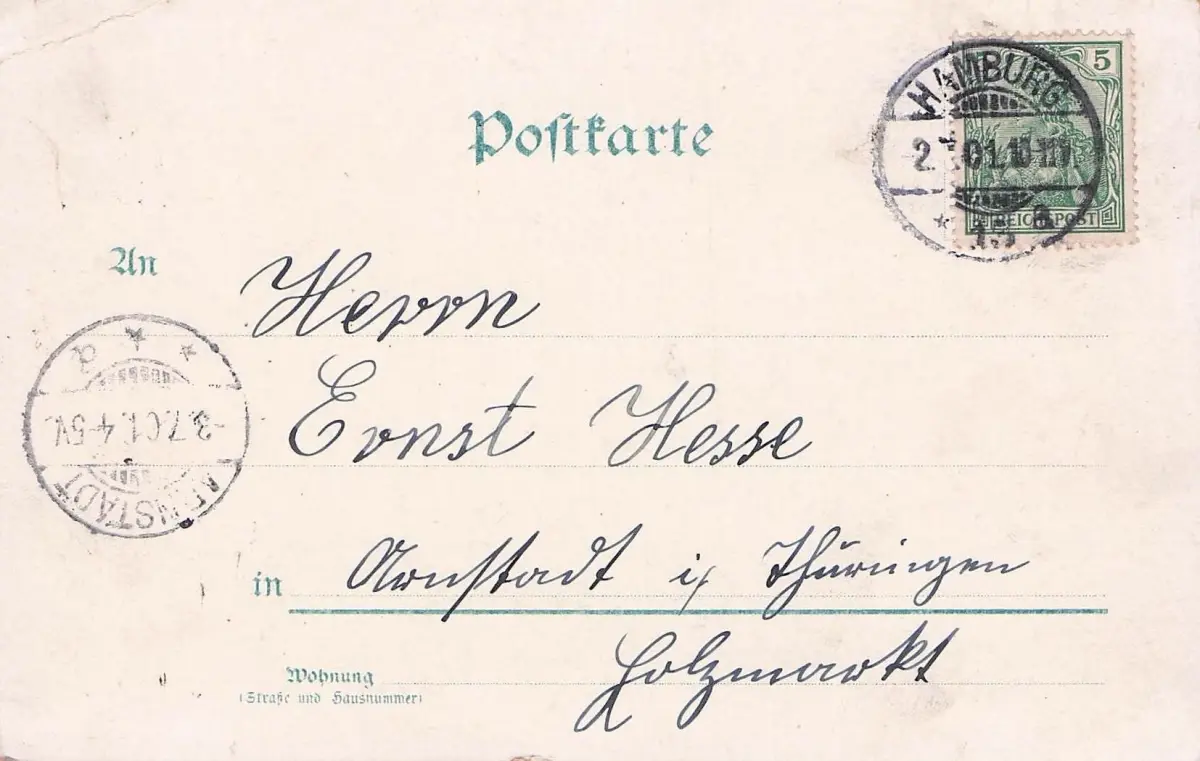 Postkarte
5
HAMBURG
REICHSPOST
An
Herrn
Ernst Hesse
in Arnstadt i/ Thüringen
Wohnung
(Straße und Hausnummer)
Holzmarkt
-3.7.01.4-5V.
ARNSTADT